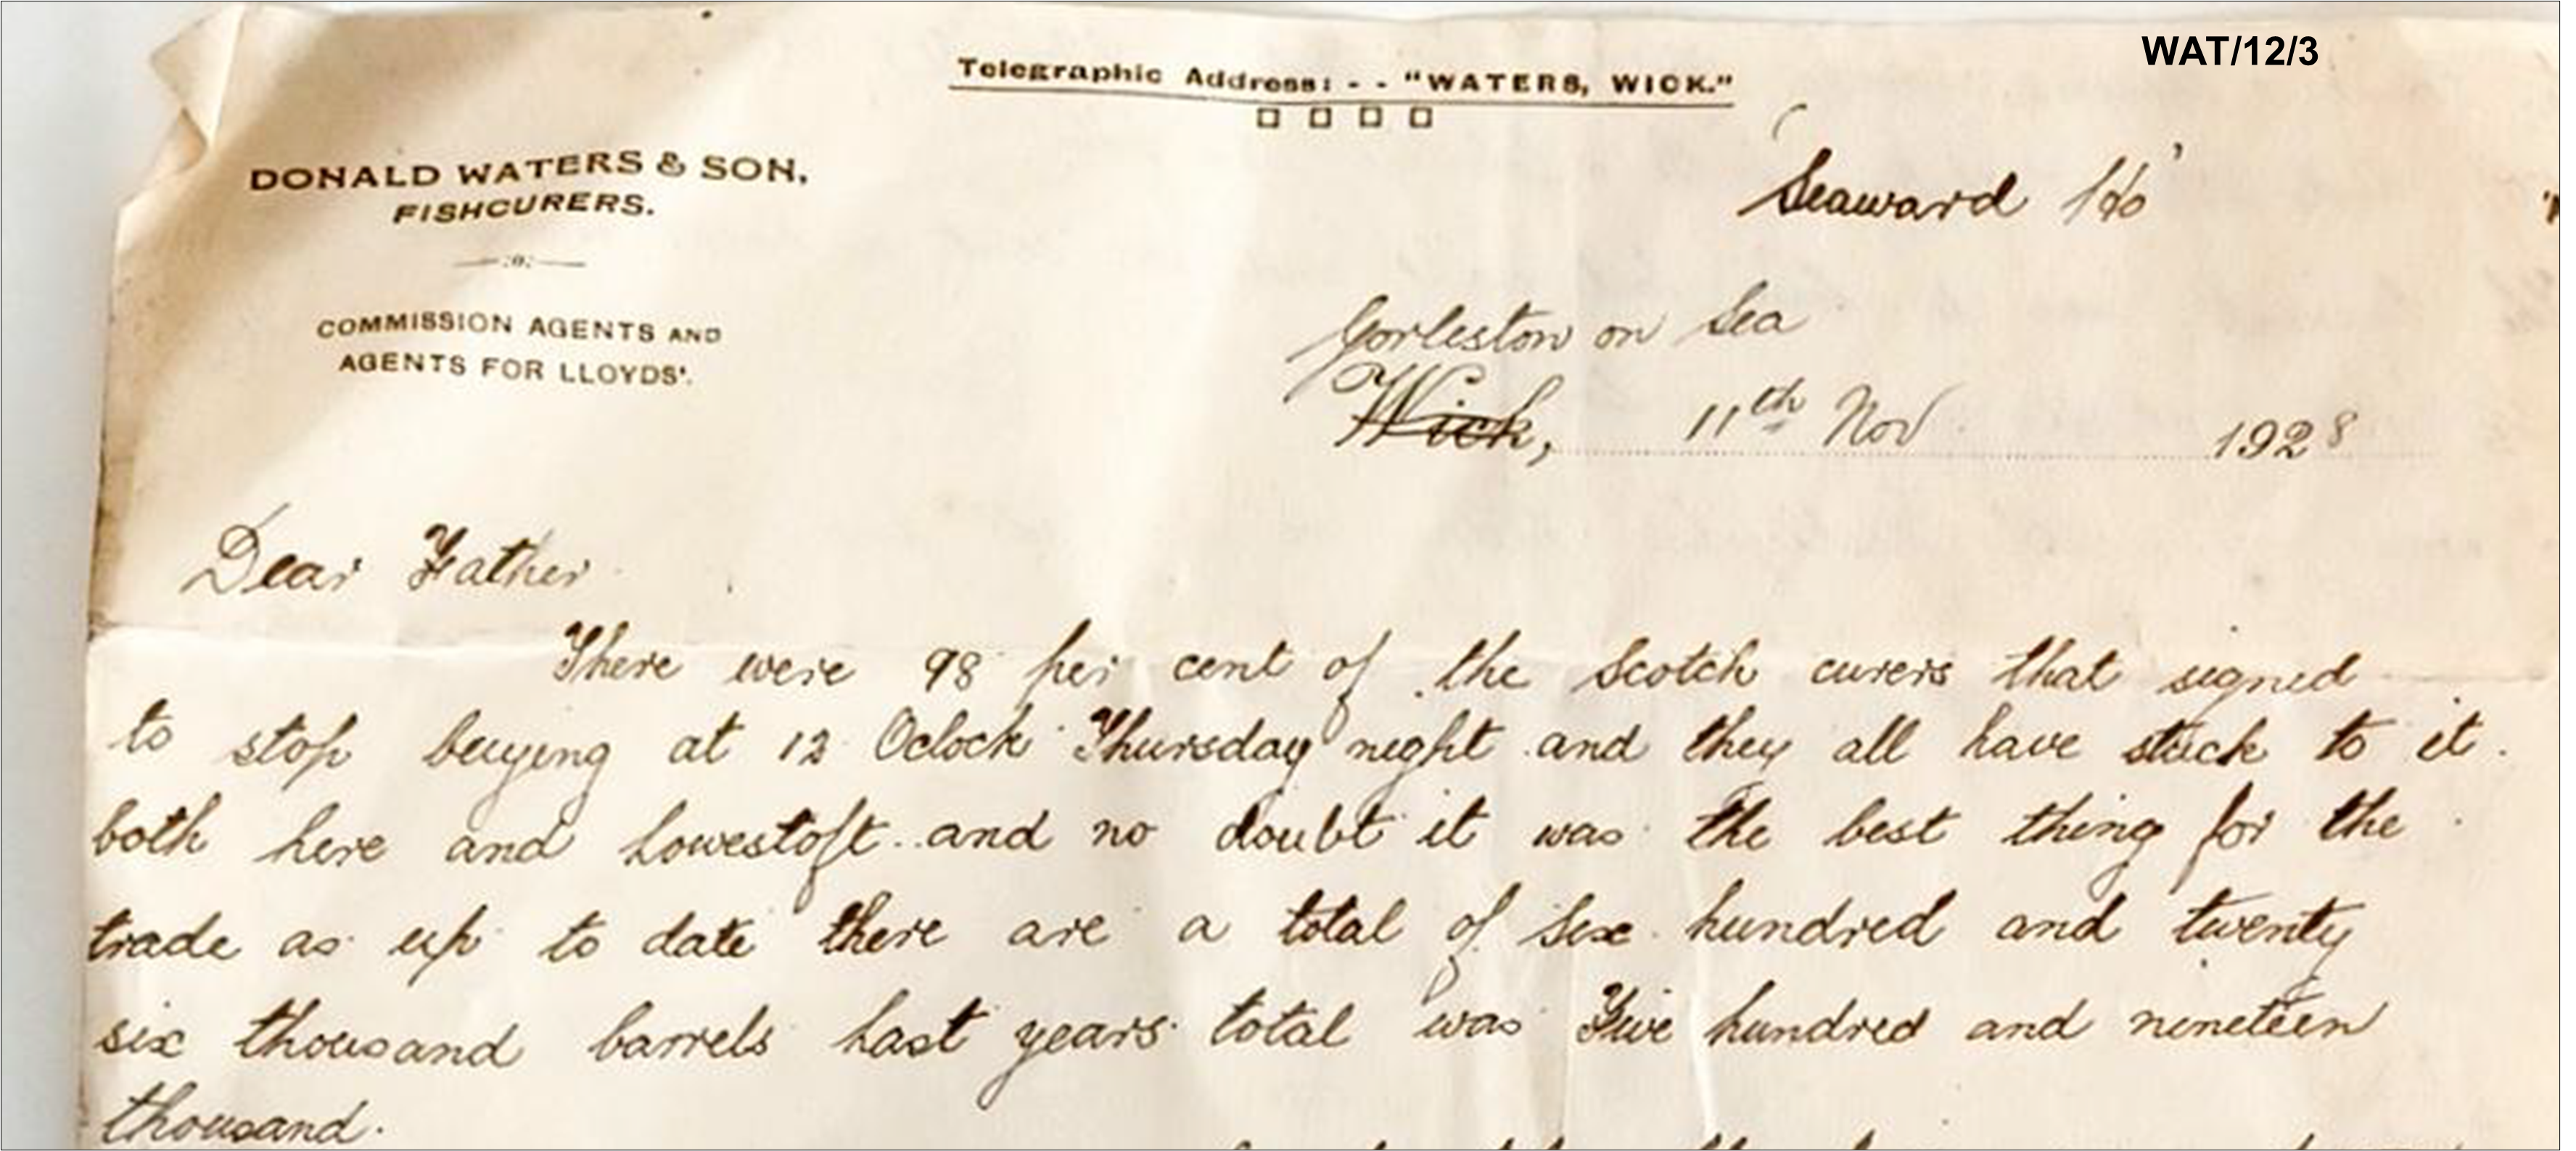 WAT/12/3
Telegraphic Address: - - "WATERS, WICK."
DONALD WATERS & SON,
FISHCURERS.
COMMISSION AGENTS AND
AGENTS FOR LLOYDS'.
'Seaward Ho'
Gorleston on Sea
Wick, 11th Nov 1928
Dear Father
There were 98 per cent of the Scotch curers that signed
to stop buying at 12 Oclock Thursday night and they all have stuck to it.
both here and Lowestoft and no doubt it was the best thing for the
trade as up to date there are a total of Six hundred and twenty
six thousand barrels Last years total was Five hundred and nineteen
thousand.